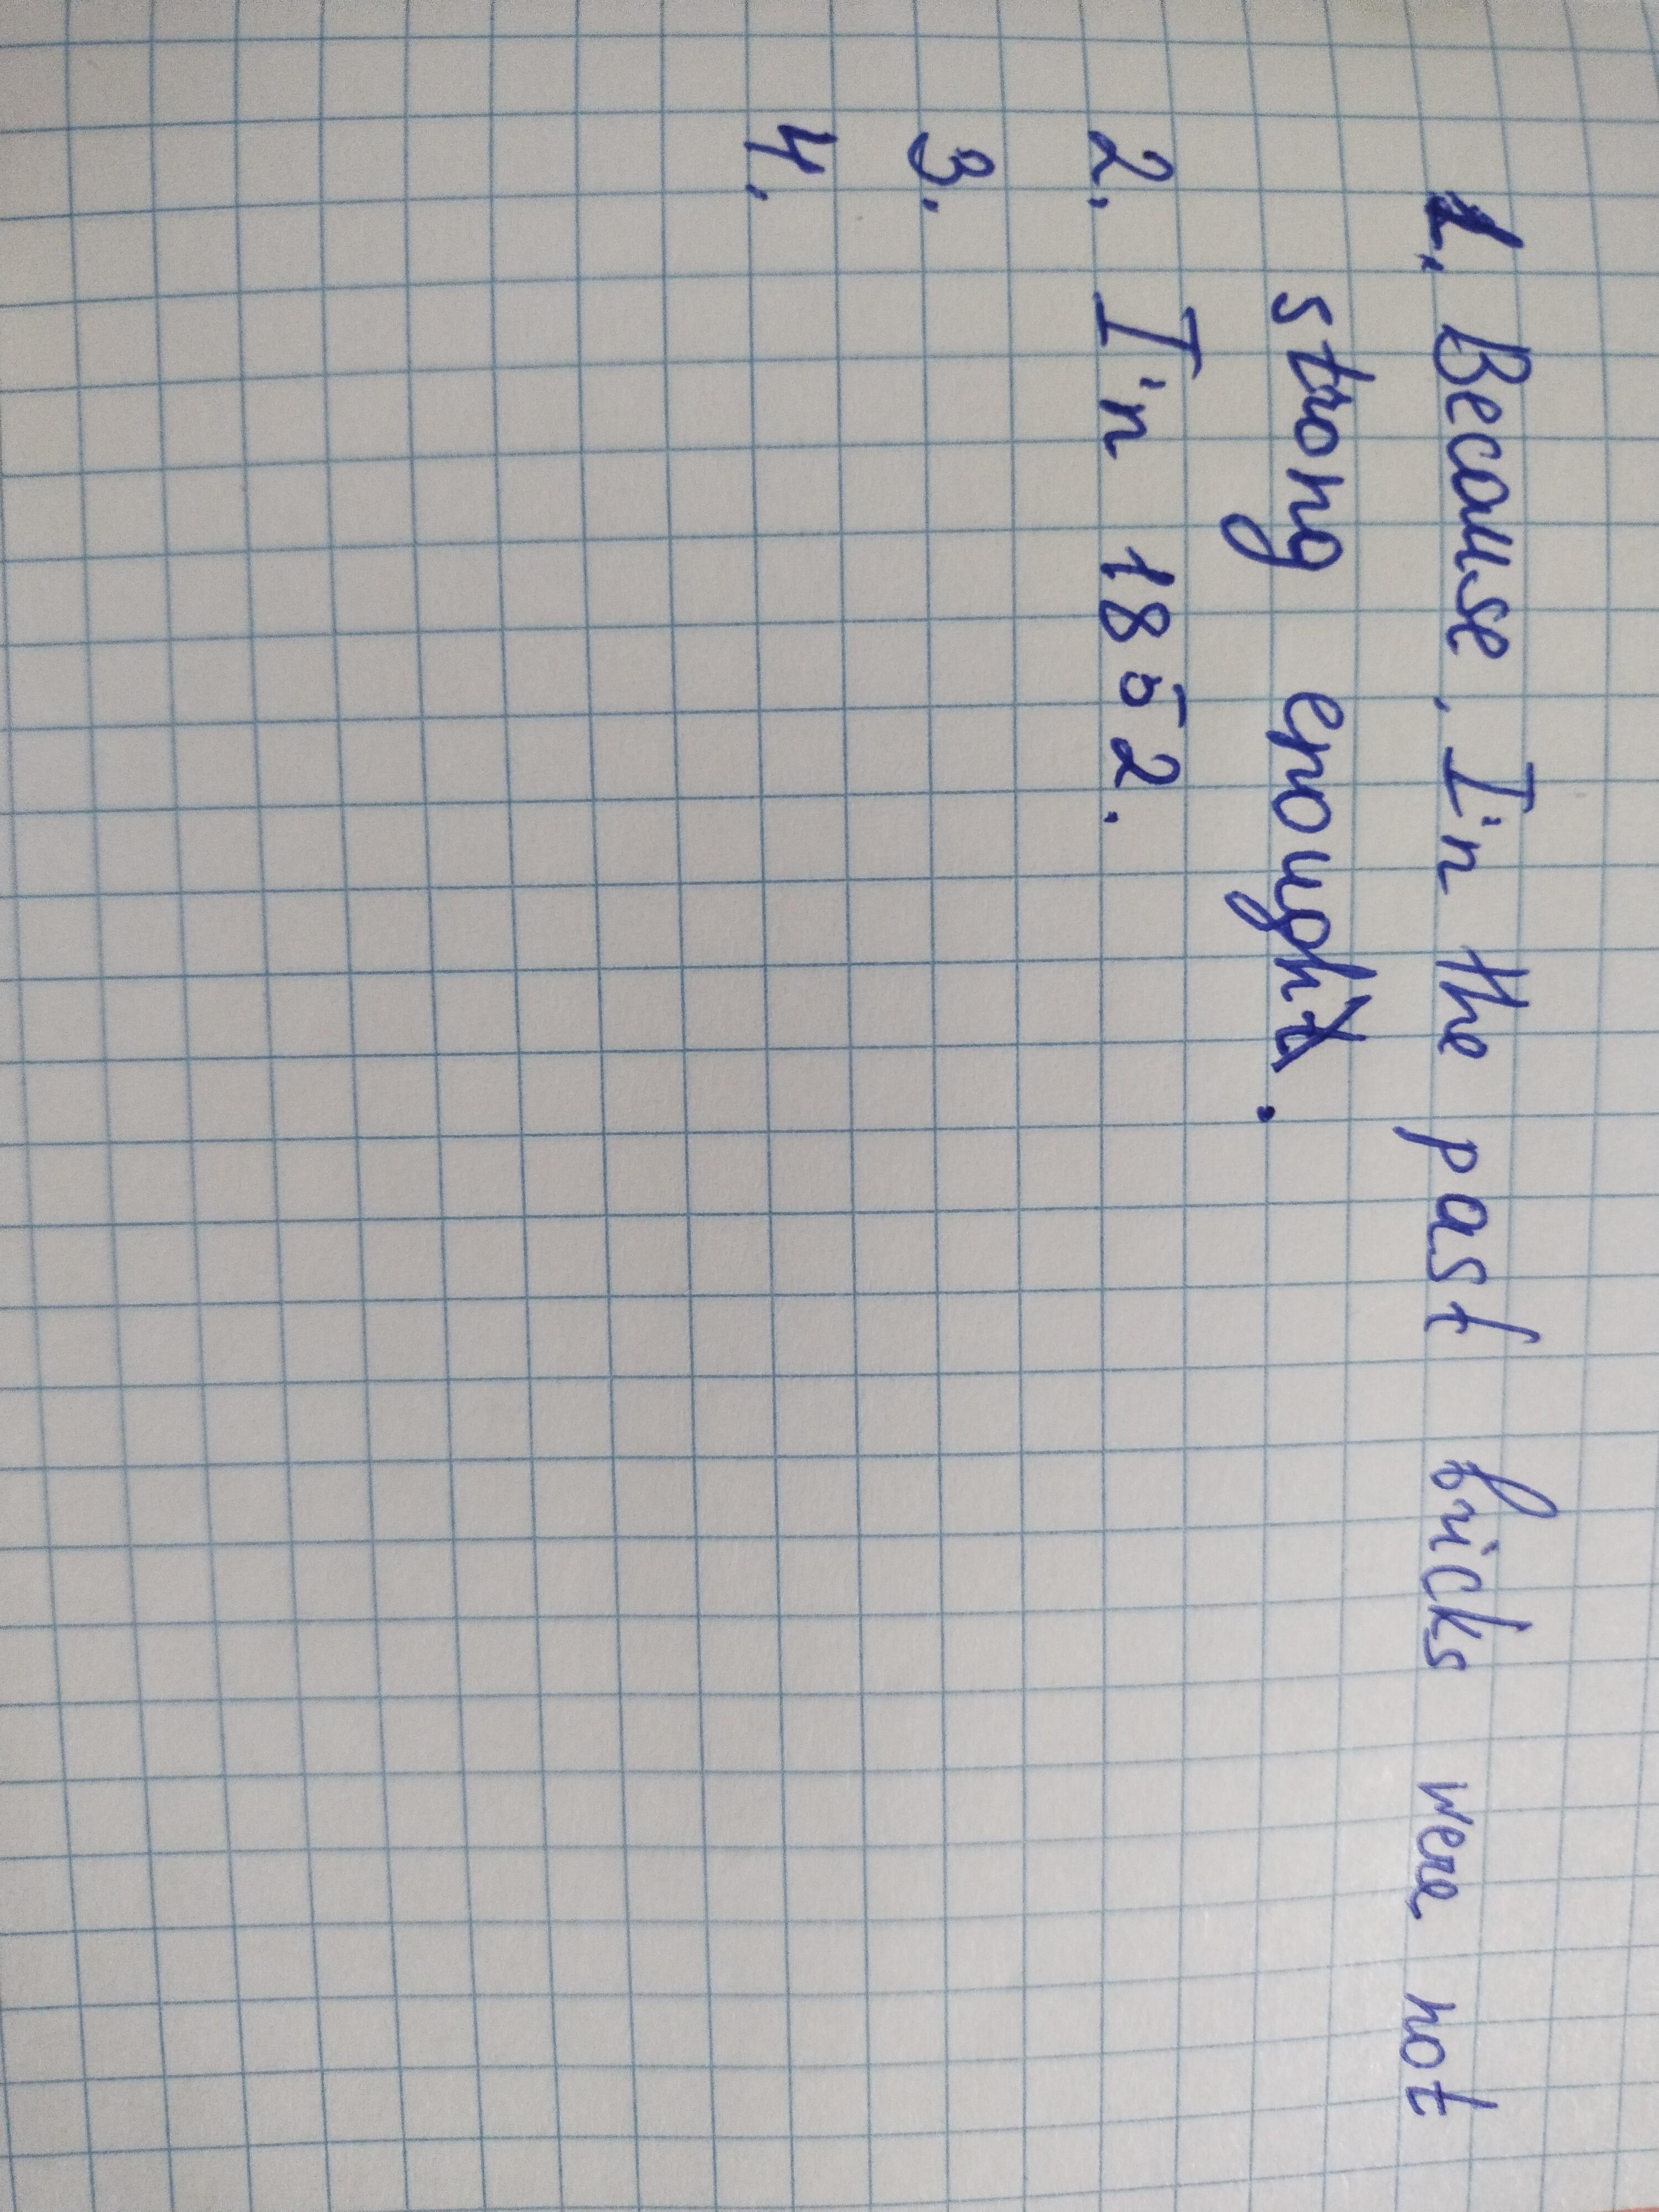 1. Because, In the past bricks were not
strong enough.
2. In 1852.
3.
4.